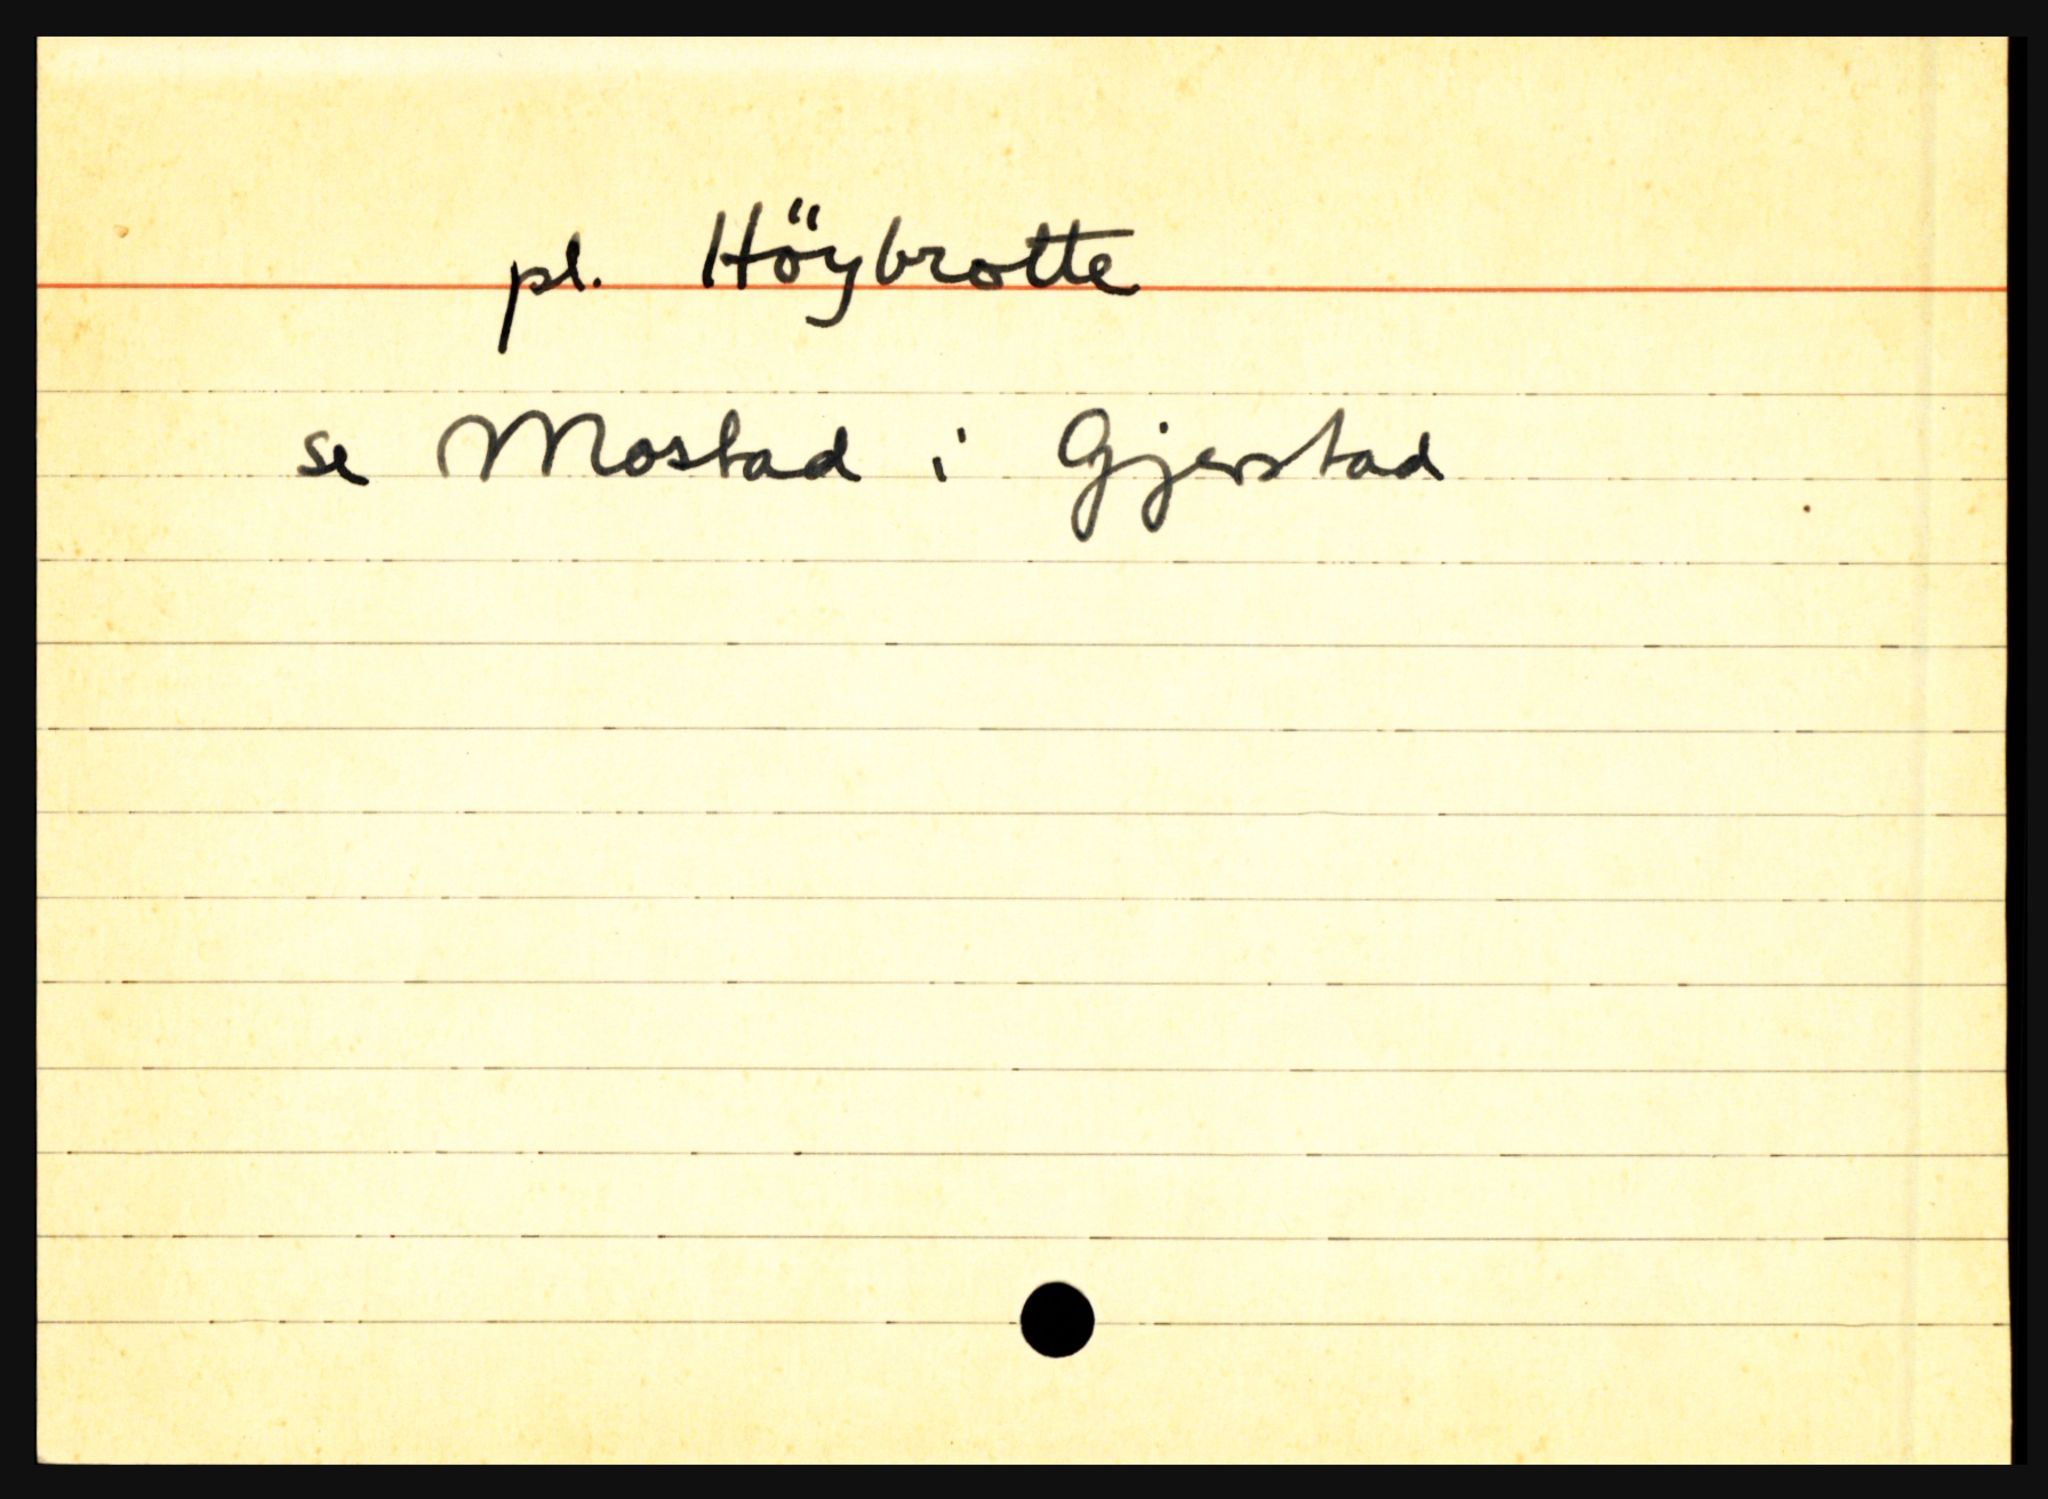 pl. Höybrotte
se Mostad i Gjerstad